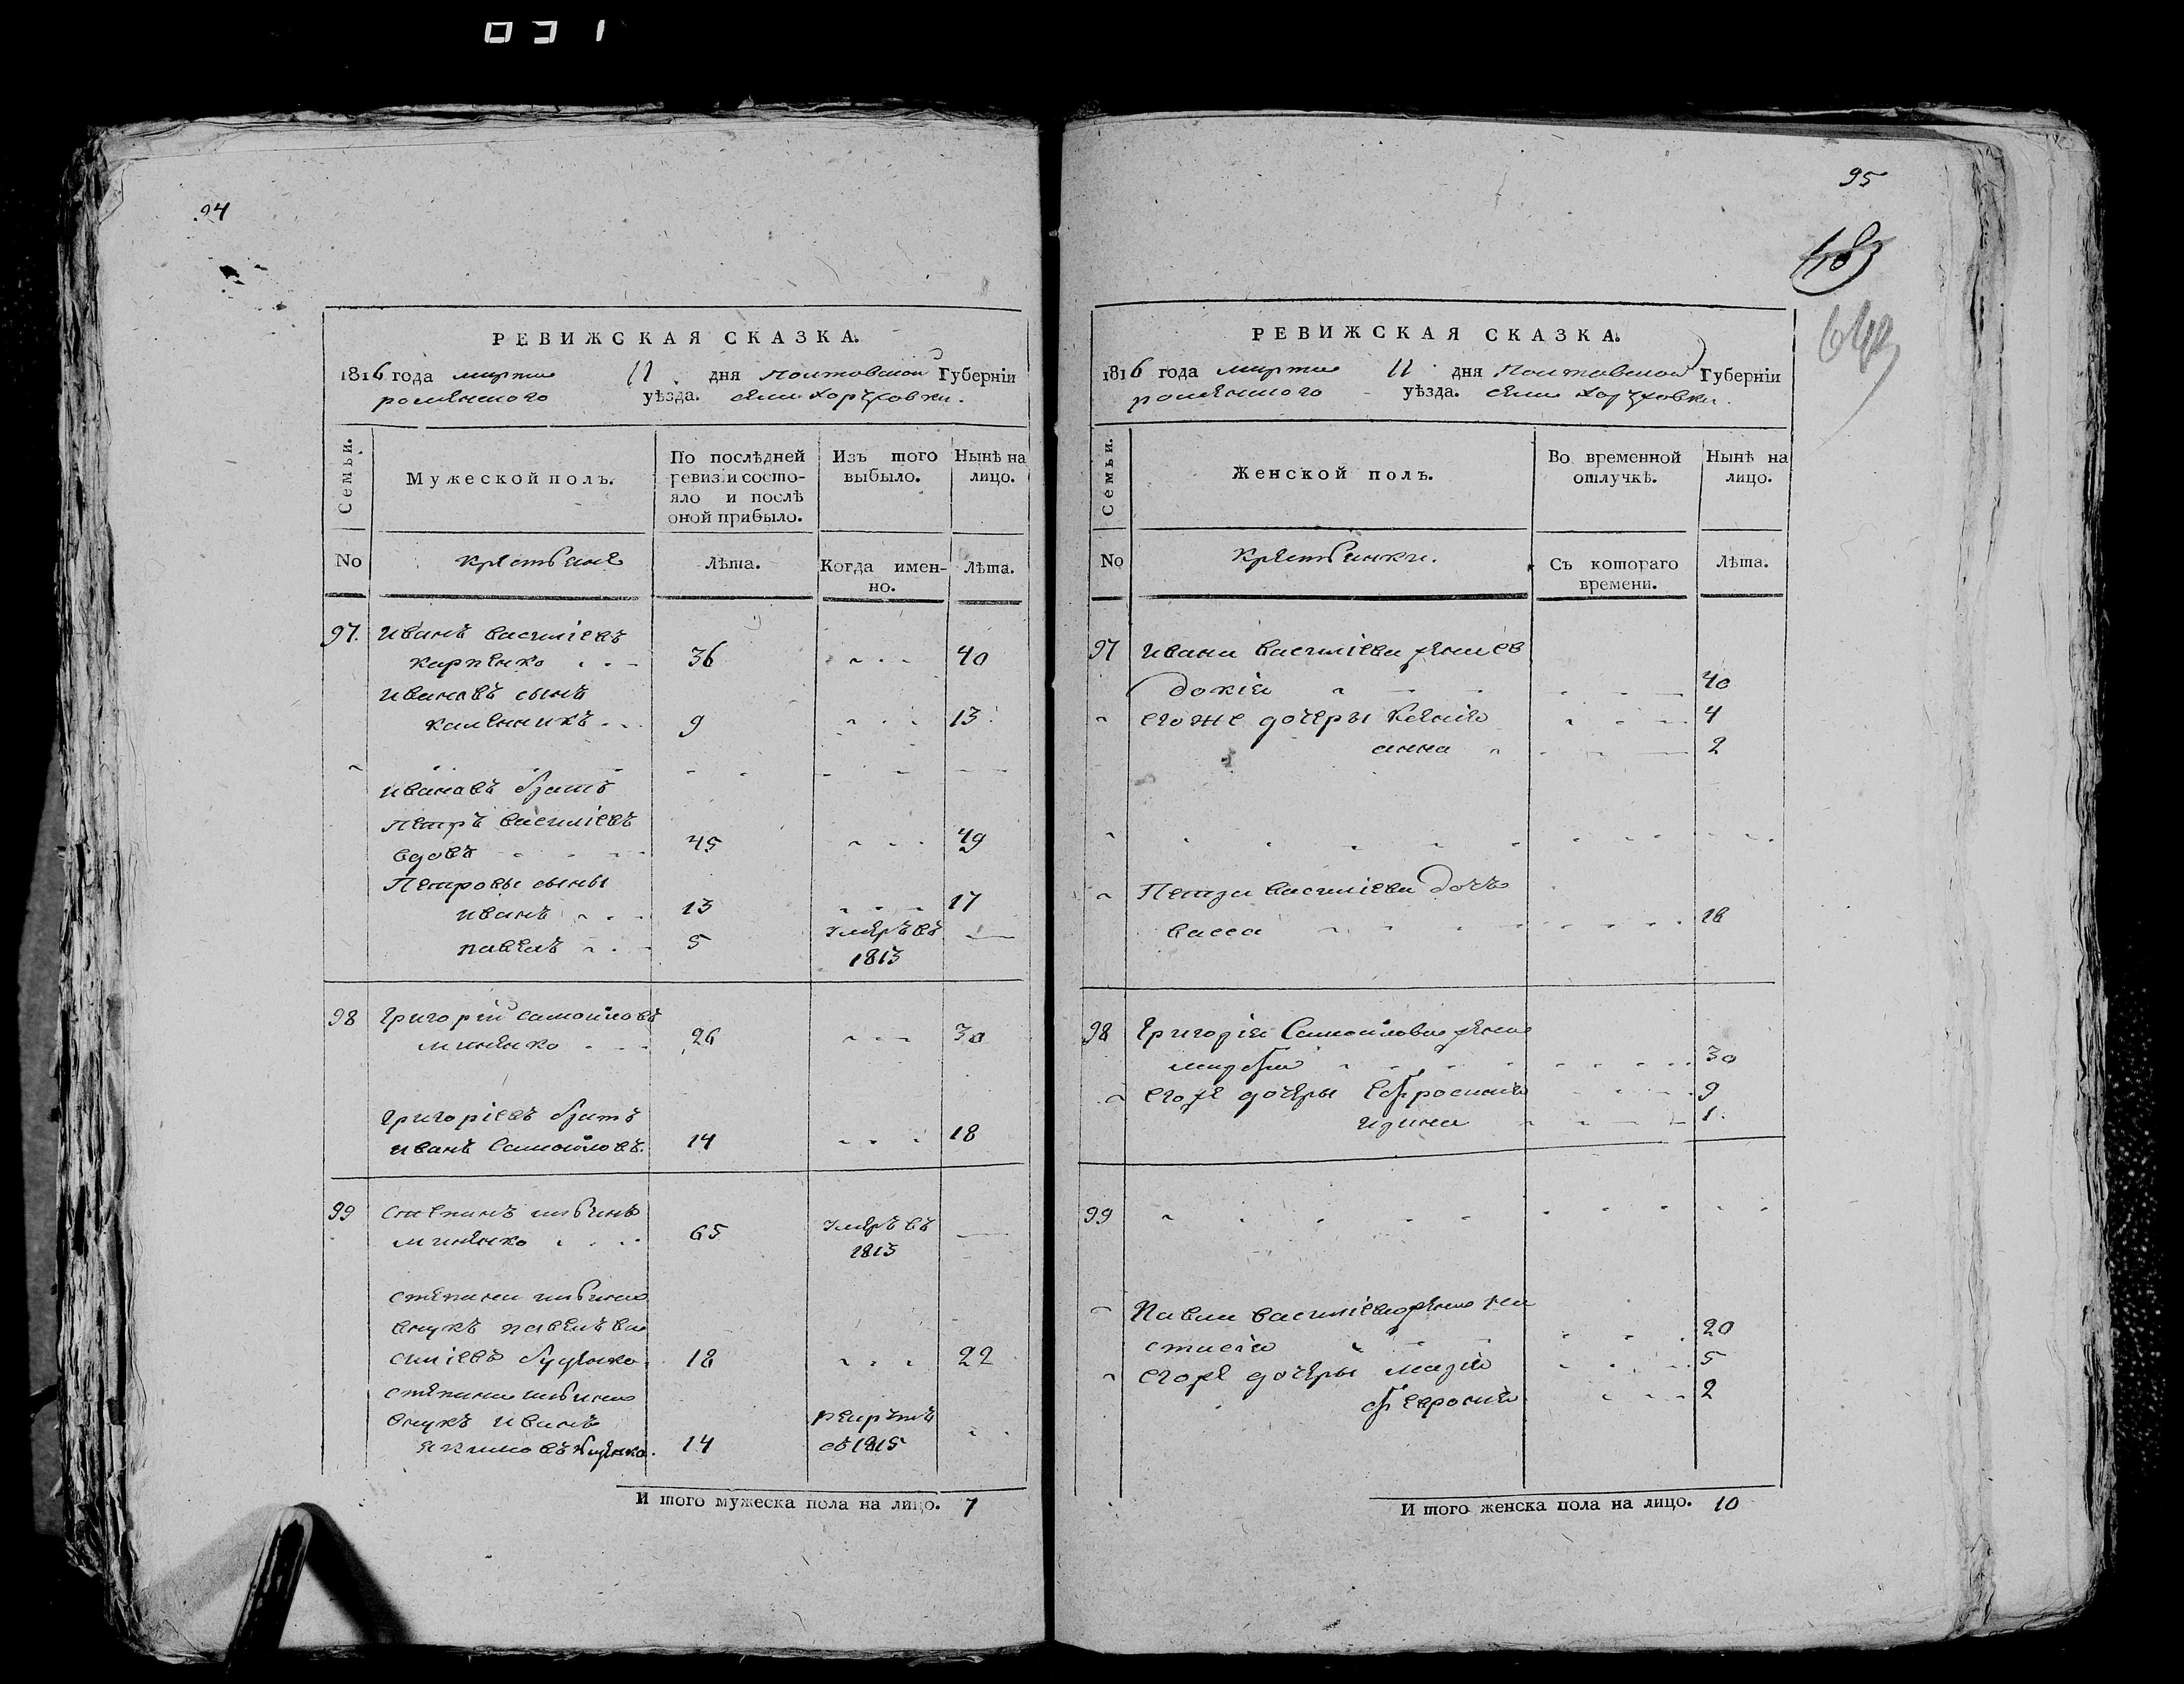 031
94
РЕВИЖСКАЯ СКАЗКА.
1816 года марта 11 дня Полтавской Губерніи
роменского уѣзда. села Хоружовки.
Семьи.
Мужеской полъ.
По послѣдней ревизіи состо-
яло и послѣ
оной прибыло.
Изъ того
выбыло.
Нынѣ на
лицо.
No
крестьяне
Лѣта.
Когда имен-
но.
Лѣта.
97. Иванъ василіевъ
карпенко 36 40
ивановъ сынъ
калѣнникъ 9 13
ивановъ братъ
Петръ василіевъ
вдовъ 45 49
Петровы сыны
иванъ 13 17
павелъ 5 умеръ въ
1813
98 Григорій самойловъ
миненко 26 30
григоріевъ братъ
иванъ Самойловъ. 14 18
99 степанъ
миненко 65 умеръ въ
1813
степана
внукъ павелъ ва
силіевъ 18 22
степана
внукъ иванъ
якимовъ 14 рекрутъ
съ 1815
И того мужеска пола на лицо. 7
95
183
РЕВИЖСКАЯ СКАЗКА.
1816 года марта 11 дня Полтавской Губерніи
роменского уѣзда. села Хоружовки.
Семьи.
Женской полъ.
Во временной
отлучкѣ.
Нынѣ на
лицо.
No
Крестьянки.
Съ котораго
времени.
Лѣта.
97 ивана василіева жена ев
докія 40
его же дочеры Ксенія 4
анна 2
Петра василіева дочь
васса 16
98 Григорія Самойлова жена
марфа 30
егоже дочеры Ефросинія 9
ирина 1.
99
Павла василіева жена на
стасія 20
егоже дочеры марія 5
феvронія 2
И того женска пола на лицо. 10